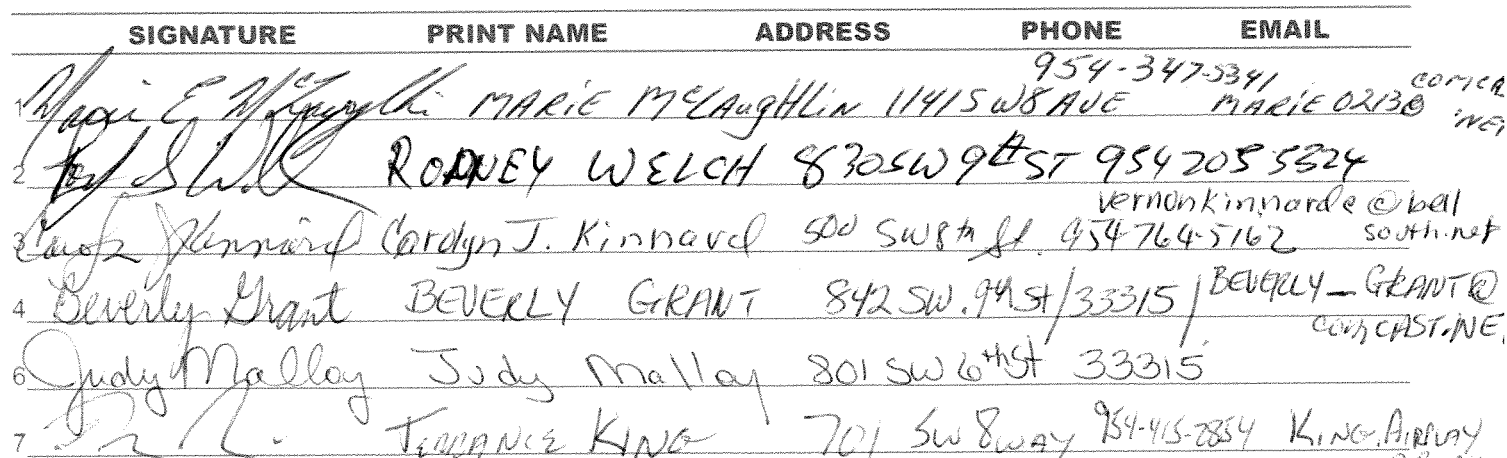 SIGNATURE PRINT NAME ADDRESS PHONE EMAIL
954-347-5341
1 Marie E McLaughlin MARIE McLAugHlin 1141 SW 8 AVE MARIE0213@ comca
.NET
2 RODNEY WELCH 830 SW 9th ST 954 205 5324
vernonkinnarde@bell
3 Carolyn J Kinnard Carolyn J. Kinnard 500 SW 8th St. 954-764-5162 south.net
4 Beverly Grant BEVERLY GRANT 842 SW. 9th St/33315/ BEVERLY_GRANT@
comCAST.NE.
6 Judy Malloy Judy Malloy 801 SW 6th St 33315
7 TERRANCE KING 701 SW 8 WAY 954-415-2854 KING.AIRWAY